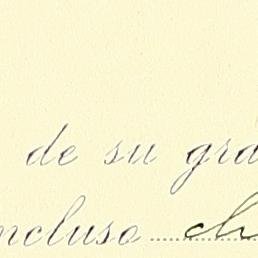 de su gra
ncluso ch